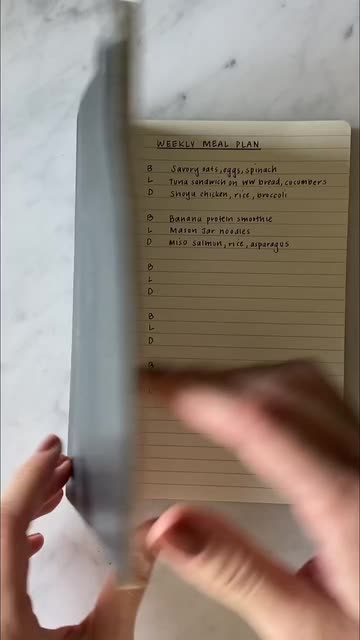 WEEKLY MEAL PLAN
B Savory oats, eggs, spinach
L Tuna sandwich on WW bread, cucumbers
D Shoyu chicken, rice, broccoli
B Banana protein smoothie
L Mason Jar noodles
D Miso salmon, rice, asparagus
B
L
D
B
L
D
B